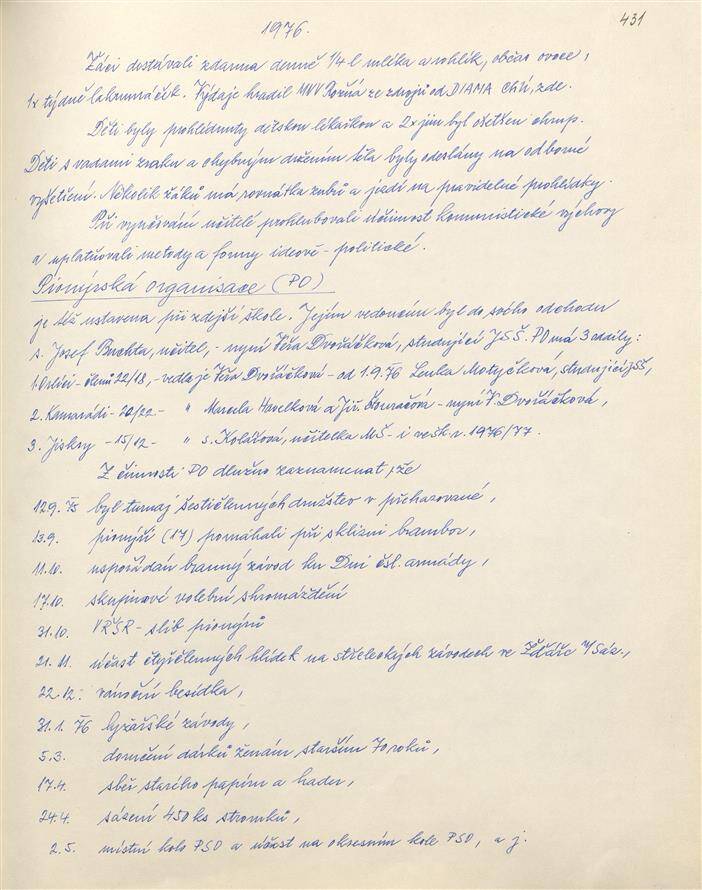 431
1976.
Žáci dostávali zdarma denně 1/4 l mléka a rohlík, občas ovoce,
1x týdně lahvináček. Výdaje hradil MNV Rožná ze zdrojů od DIAMA ChÚ, zde.
Děti byly prohlédnuty dětskou lékařkou a 2x jim byl ošetřen chrup.
Děti s vadami zraku a chybným držením těla byly odeslány na odborné
vyšetření. Několik žáků má rovnátka zubů a jezdí na pravidelné prohlídky.
Při vyučování učitelé prohlubovali účinnost komunistické výchovy
a uplatňovali metody a formy ideově-politické.
Pionýrská organisace (PO)
je též ustavena při zdejší škole. Jejím vedoucím byl do svého odchodu
s. Josef Buchta, učitel, - nyní Věra Dvořáčková, studující JSŠ. PO má 3 oddíly:
1. Orlíci - členů 22/18, - vedla je Věra Dvořáčková - od 1.9.76 Lenka Motyčková, studující JSŠ,
2. Kamarádi - 20/22 - " Marcela Havelková a Jiř. - nyní V. Dvořáčková,
3. Jiskry - 15/12 - " s. Kolářová, učitelka MŠ - i ve šk. r. 1976/77.
Z činnosti PO dlužno zaznamenat, že
12.9. 75 byl turnaj šestičlenných družstev v přehazované,
13.9. pionýři (17) pomáhali při sklizni brambor,
11.10. uspořádán branný závod ku Dni čsl. armády,
17.10. skupinové volební shromáždění
31.10. VŘSR - slib pionýrů
21.11. účast čtyřčlenných hlídek na střeleckých závodech ve Žďáře n/Sáz.,
22.12. vánoční besídka,
31.1. 76 lyžařské závody,
5.3. doručení dárků ženám starším 70 roků,
17.4. sběr starého papíru a hader,
24.4. sázení 450 ks stromků,
2.5. místní kolo PSO a účast na okresním kole PSO, a j.